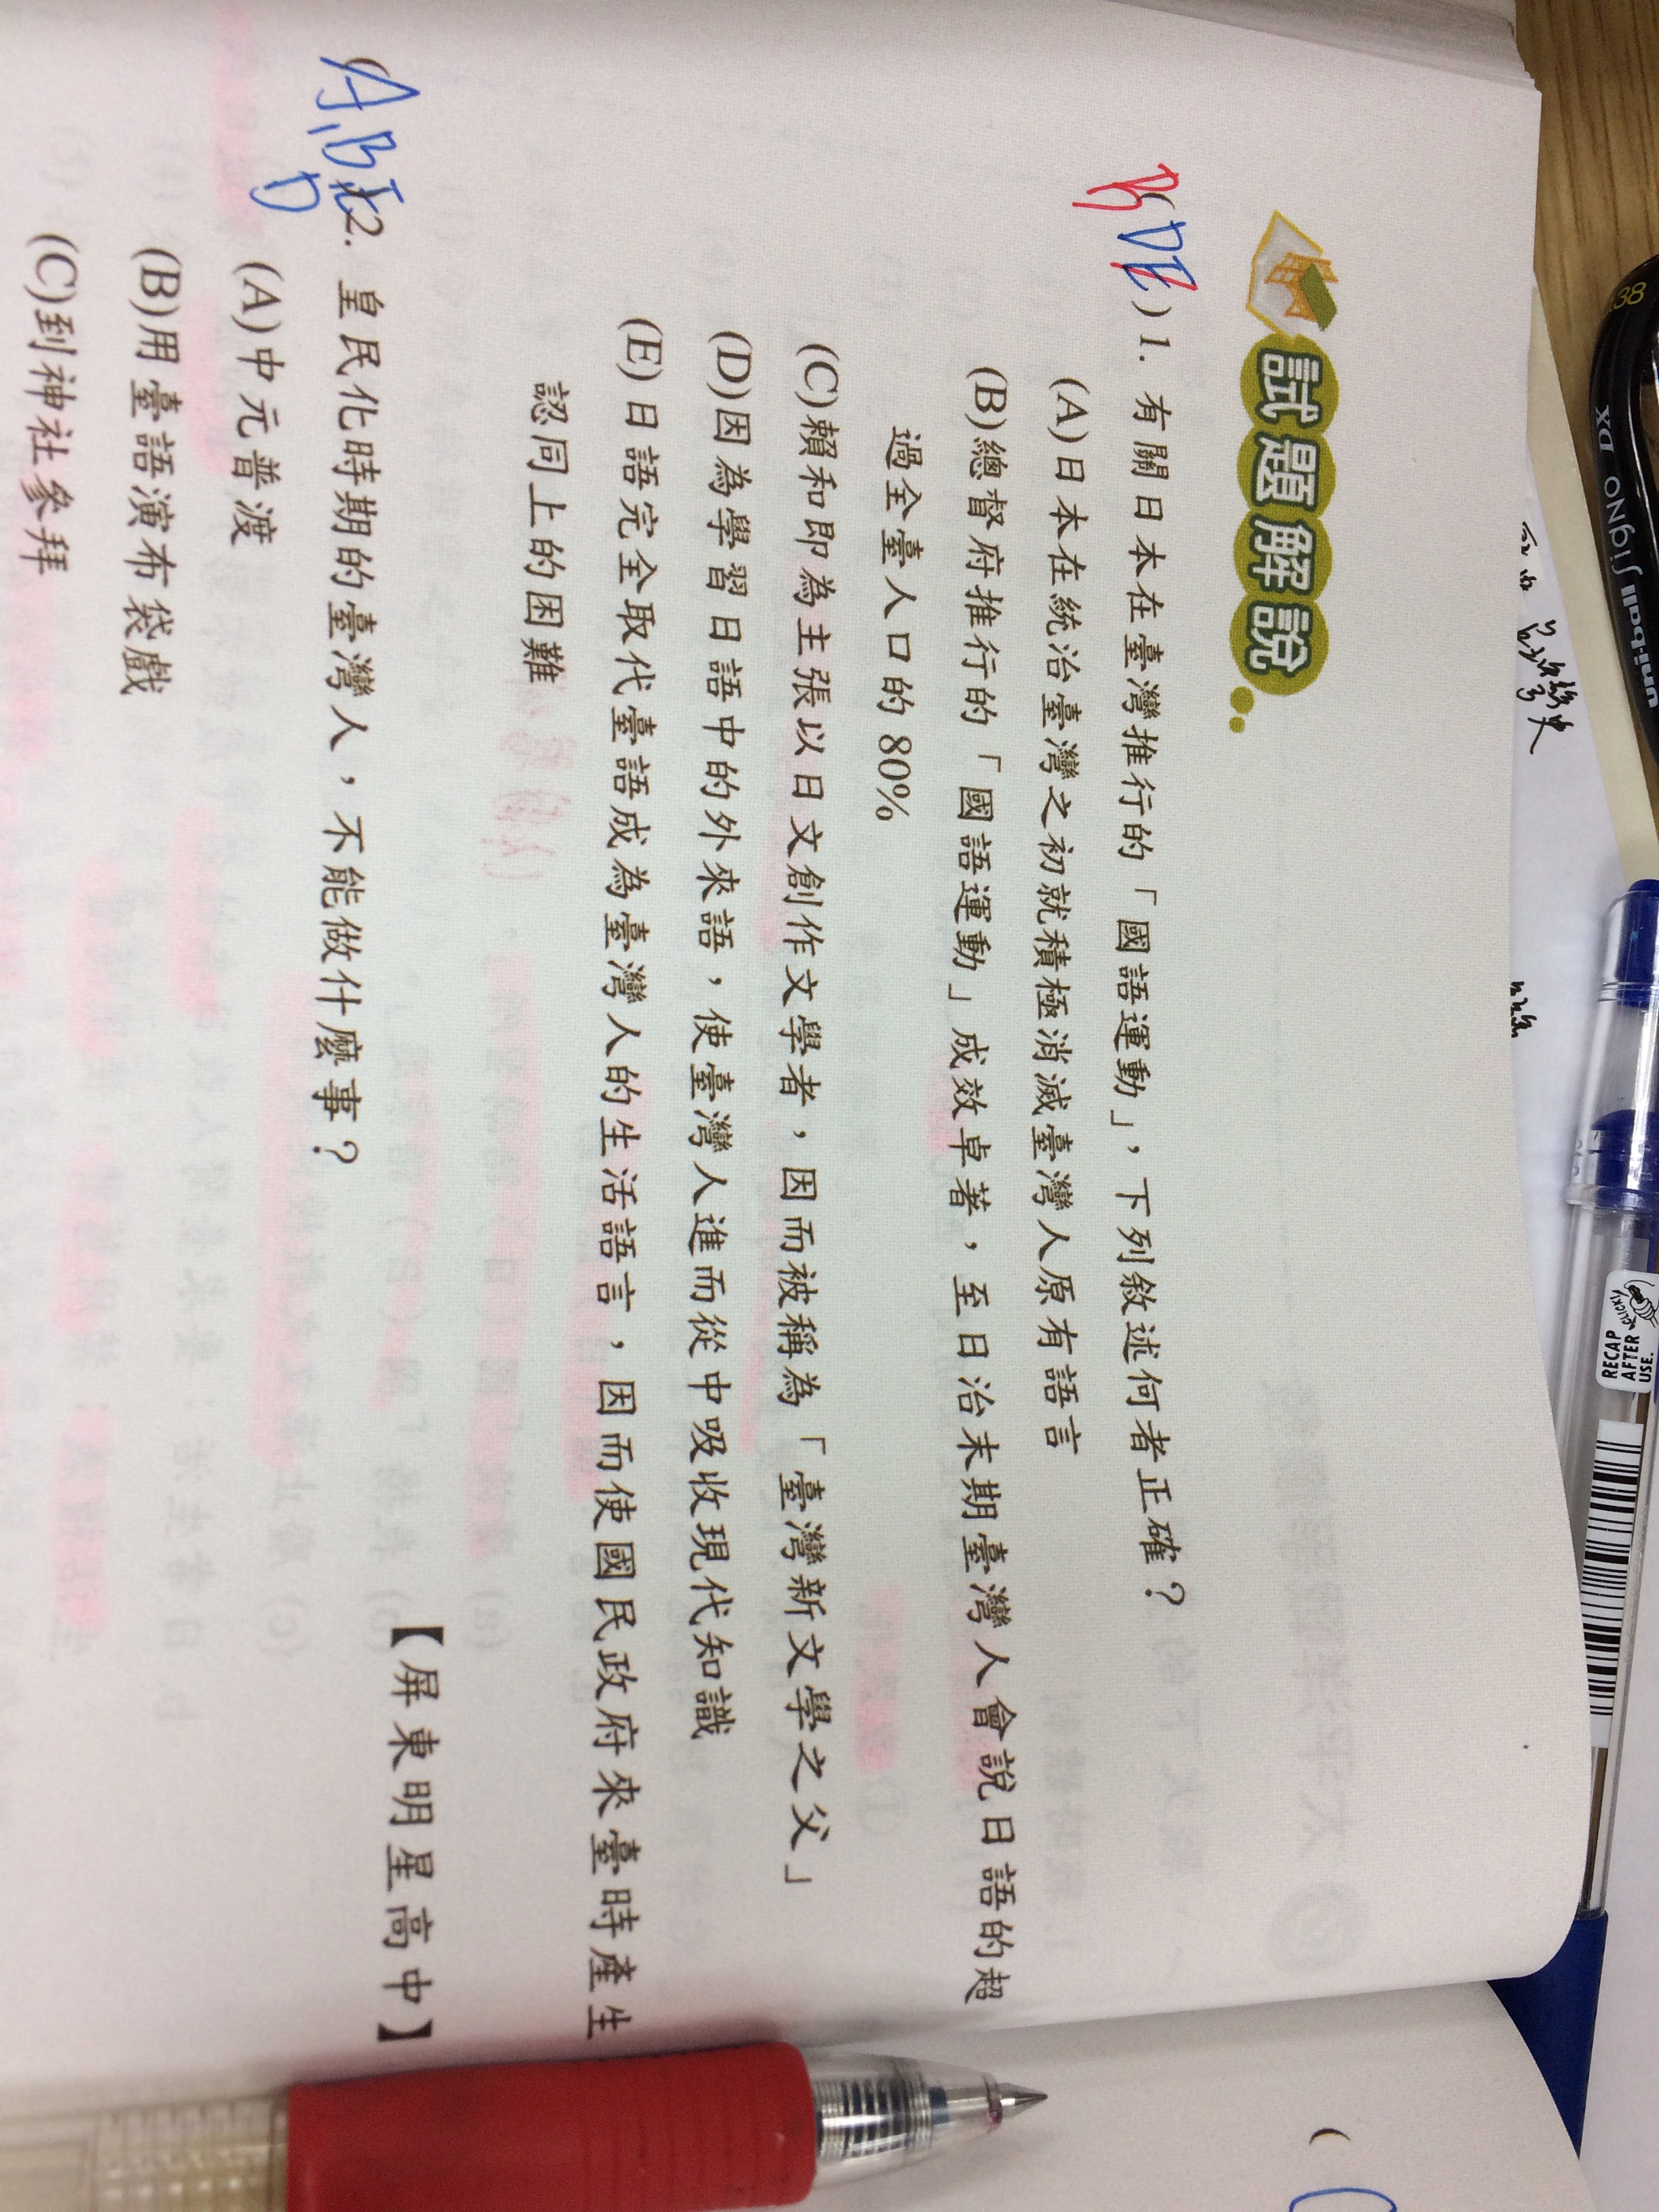 試題解說
BDE
( )1. 有關日本在臺灣推行的「國語運動」，下列敘述何者正確？
(A)日本在統治臺灣之初就積極消滅臺灣人原有語言
(B)總督府推行的「國語運動」成效卓著，至日治末期臺灣人會說日語的超
過全臺人口的 80%
(C)賴和即為主張以日文創作文學者，因而被稱為「臺灣新文學之父」
(D)因為學習日語中的外來語，使臺灣人進而從中吸收現代知識
(E)日語完全取代臺語成為臺灣人的生活語言，因而使國民政府來臺時產生
認同上的困難
【屏東明星高中】
A,B
D
2. 皇民化時期的臺灣人，不能做什麼事？
(A)中元普渡
(B)用臺語演布袋戲
(C)到神社參拜
38
uni-ball Signo DX
CLICK!
RECAP
AFTER
USE.